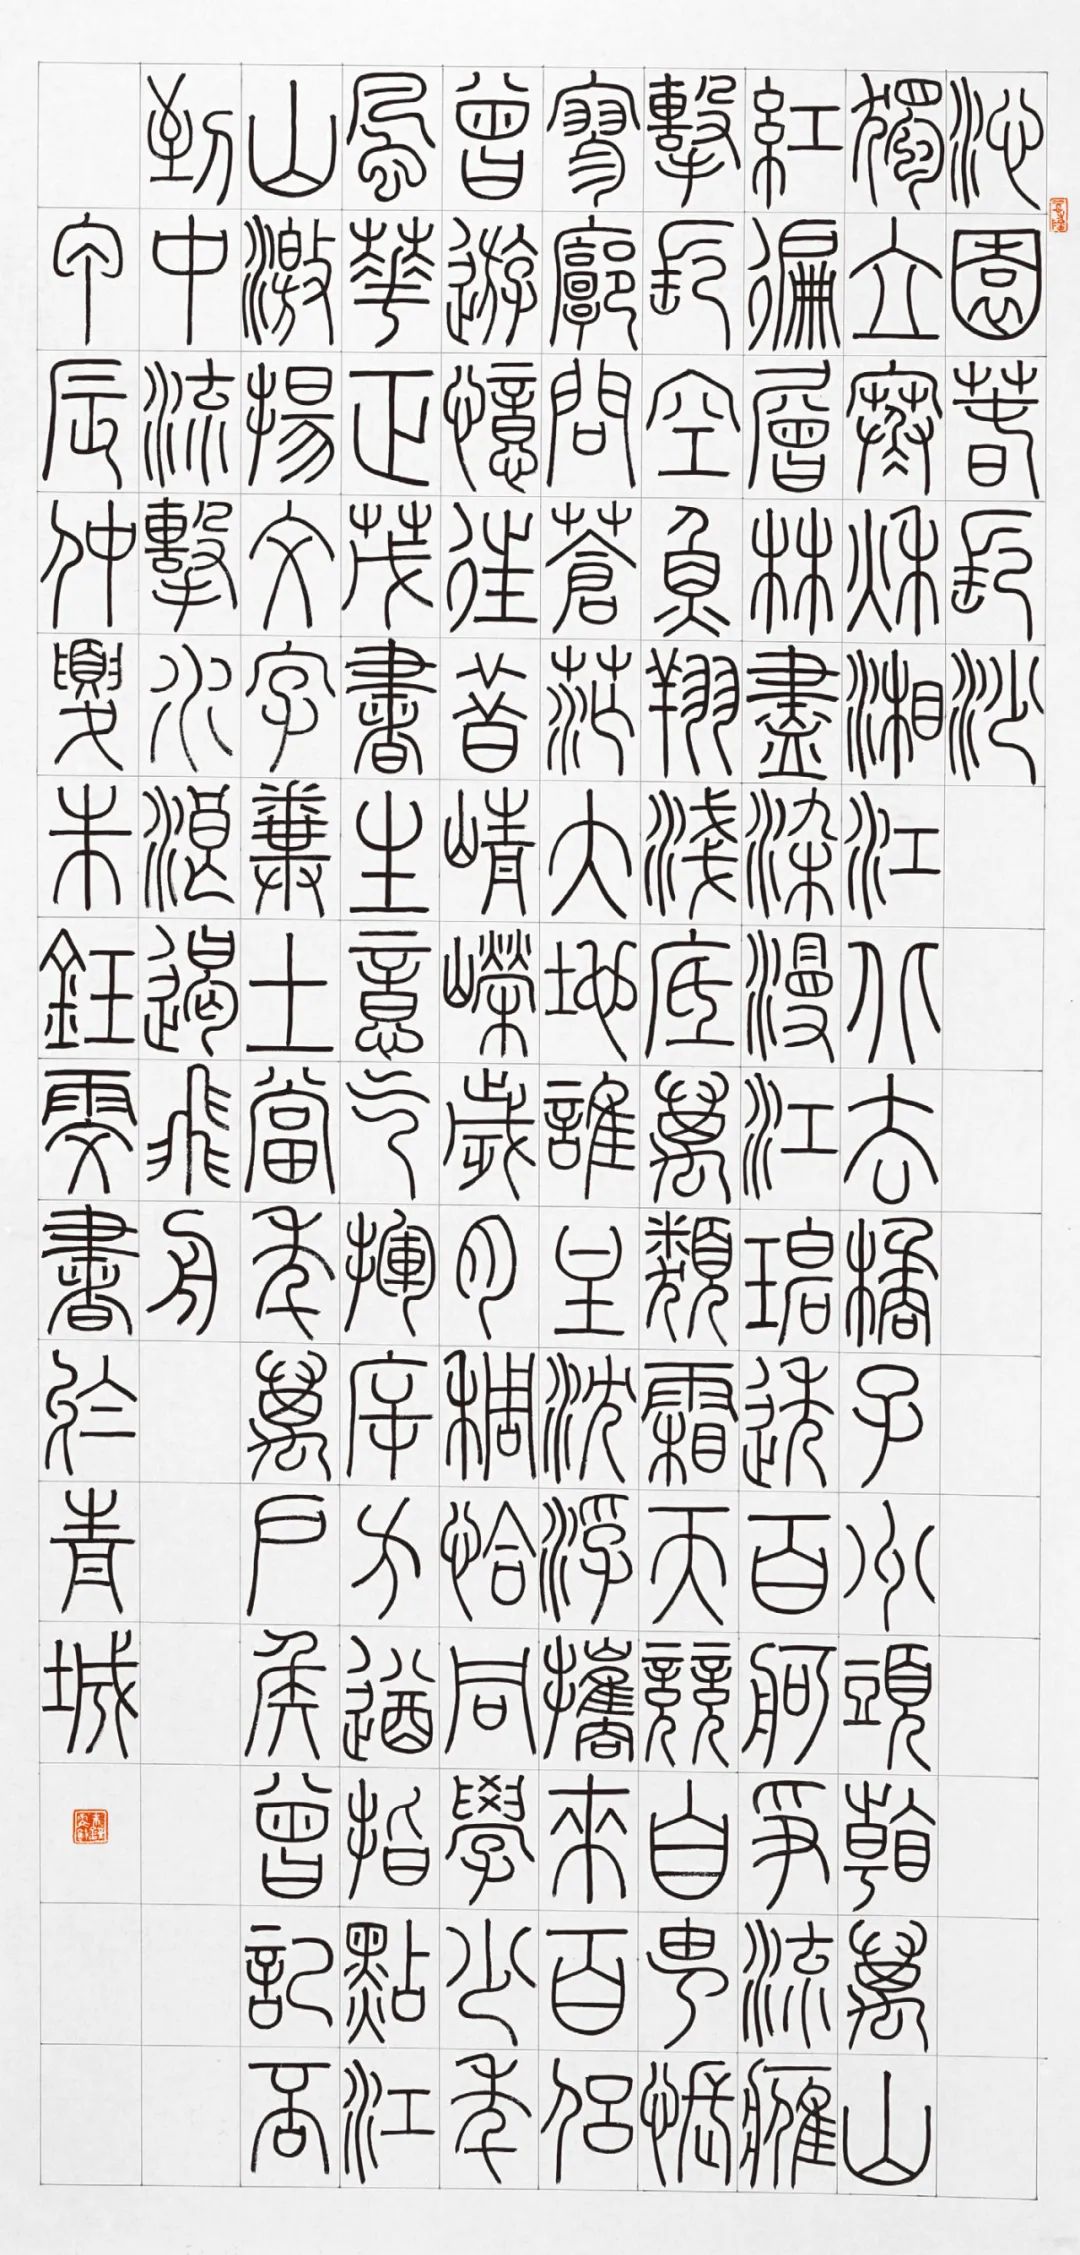 沁園春長沙
獨立寒秋湘江北去橘子州頭看萬山
紅徧層林盡染漫江碧透百舸爭流鷹
擊長空魚翔淺底萬類霜天競自由悵
寥廓問蒼茫大地誰主沈浮攜來百侶
曾遊憶往昔崢嶸歲月稠恰同學少年
風華正茂書生意气揮斥方遒指點江
山激揚文字糞土當年萬戶侯曾記否
到中流擊水浪遏飛舟
甲辰仲夏朱鈺雯書於青城